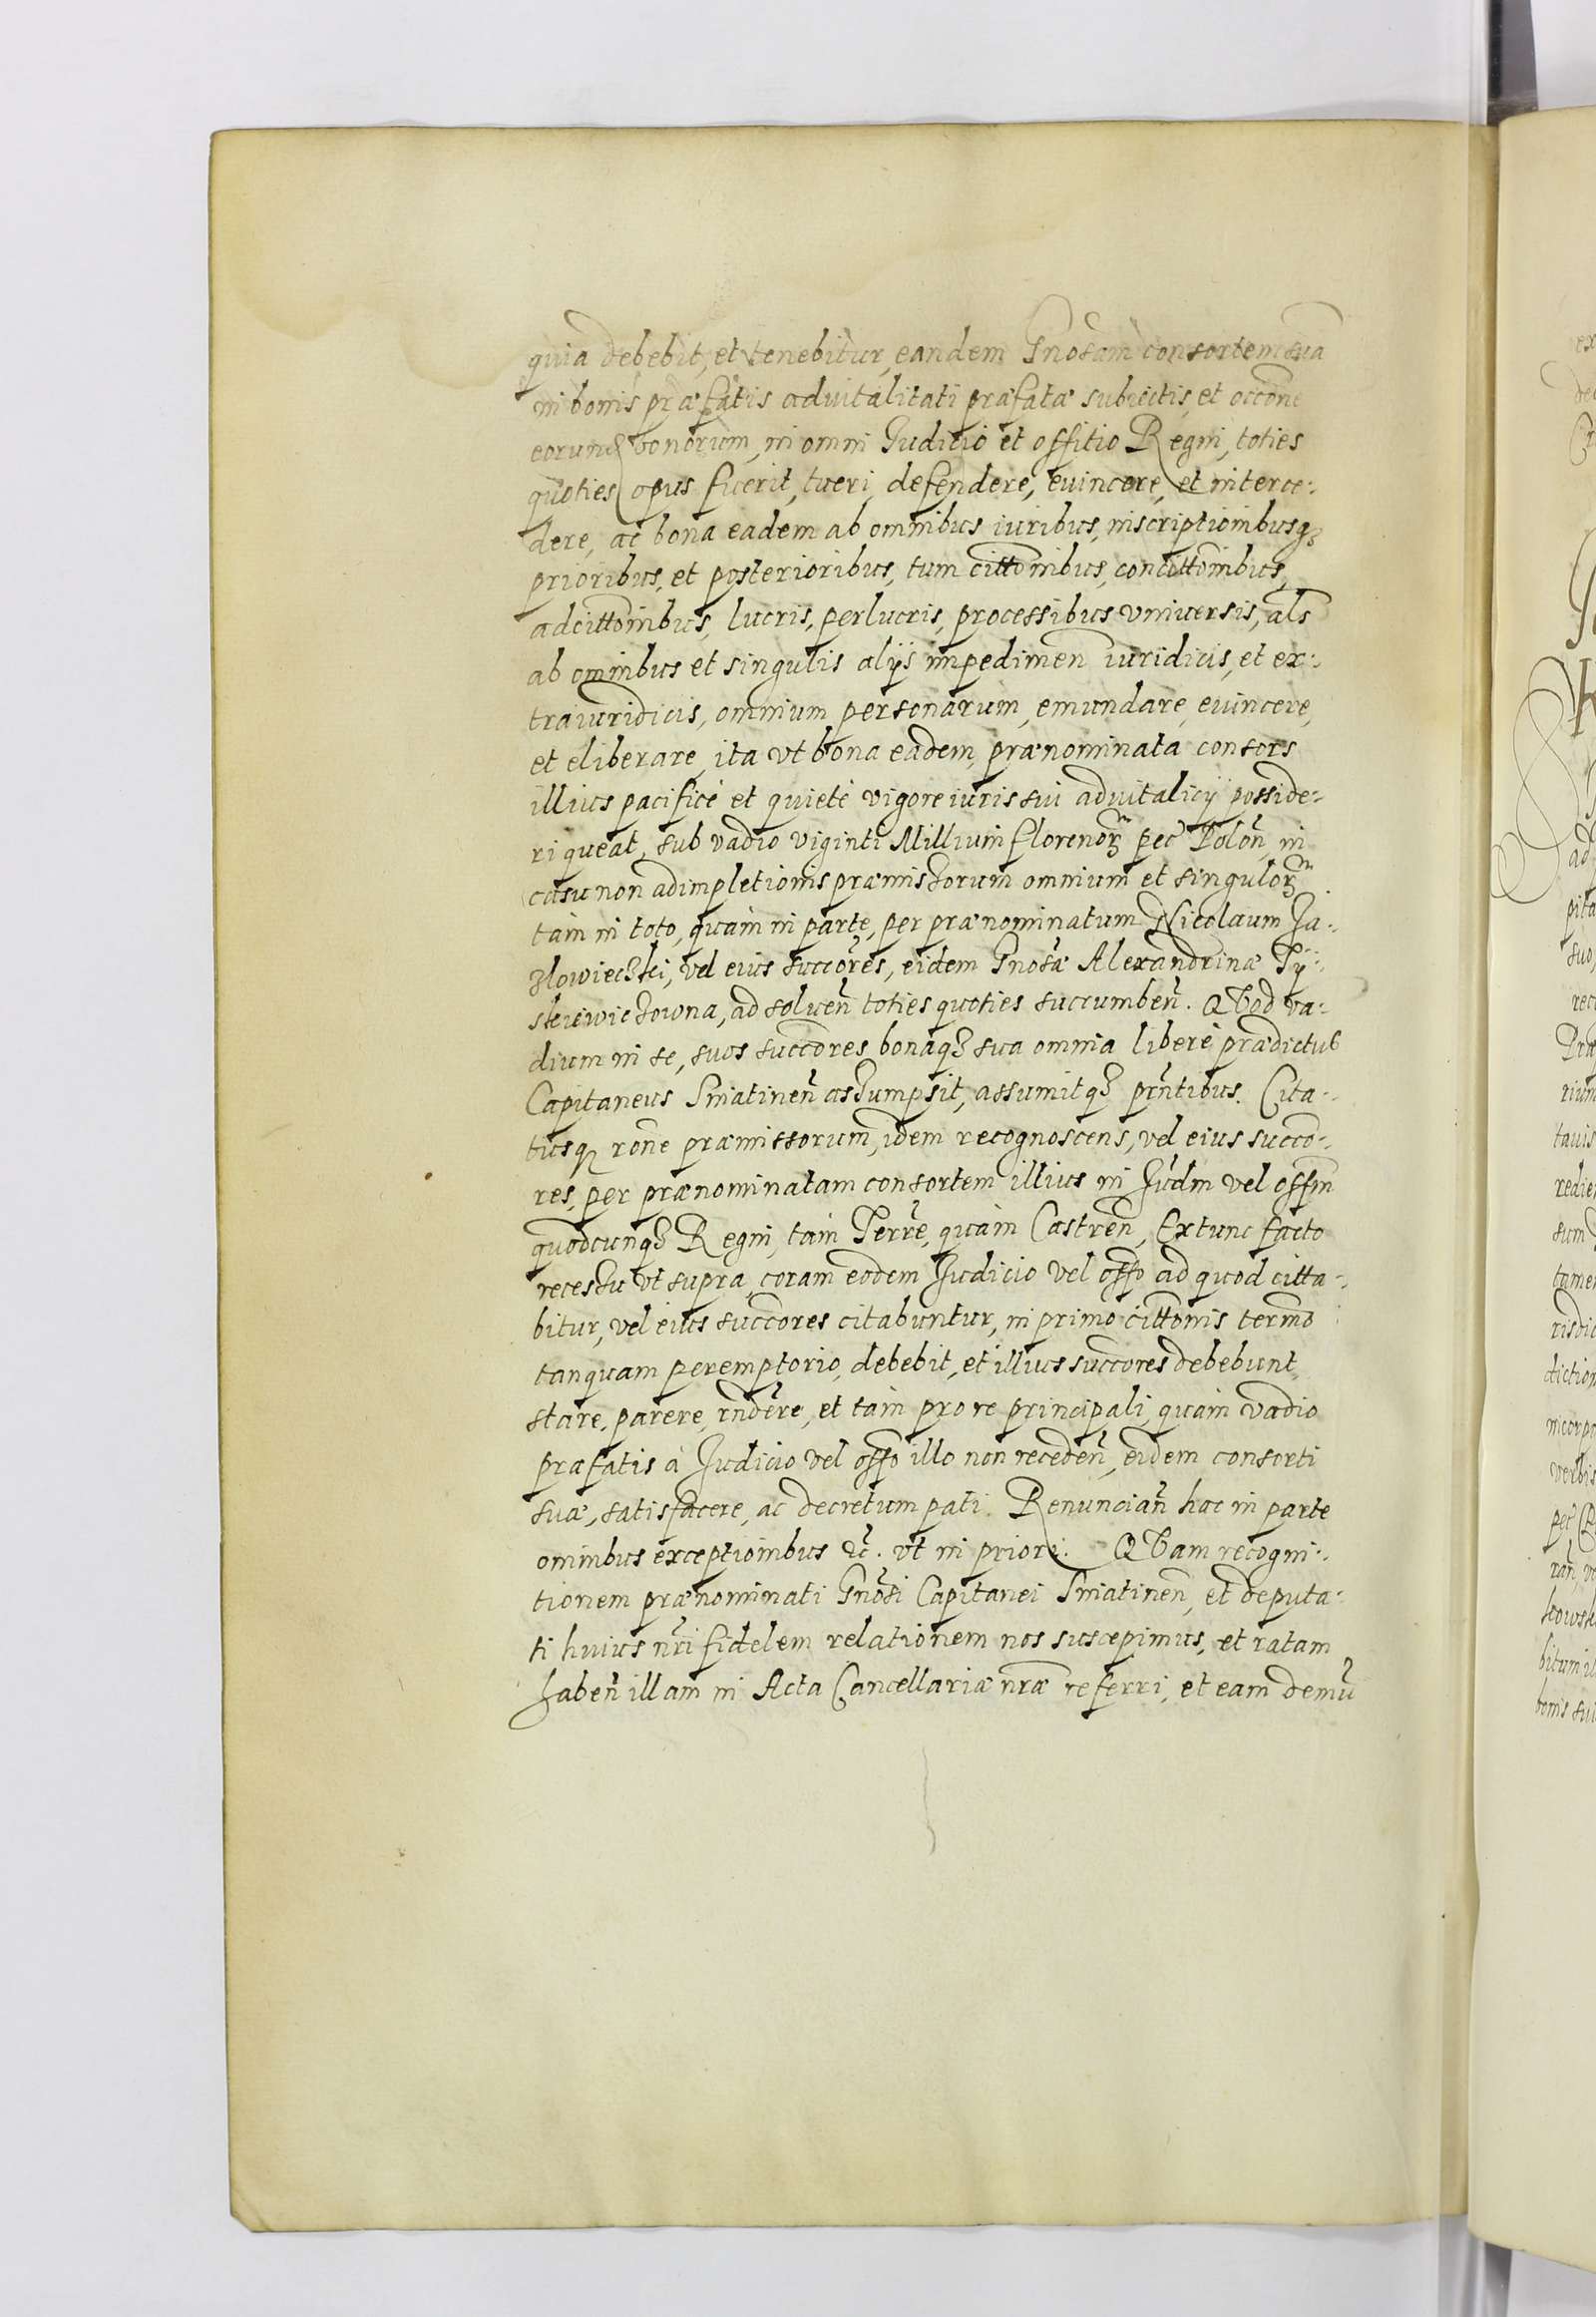 quia debebit, et tenebitur, eandem Gnosam consortem sua
in bonis præfatis advitalitati præfatæ subiectis, et occõne
eorundẽ bonorum, in omni Iudicio et offitio Regni, toties
quoties opus fuerit, tueri, defendere, euincere, et interce:
dere, ac bona eadem ab omnibus iuribus, inscriptionibusqꝫ
prioribus, et posterioribus, tum cittõnibus, concittõnibus,
adcittõnibus, lucris, perlucris, processibus vniuersis, als̃
ab omnibus et singulis alÿs impedimen̄ iuridicis, et ex:
traiuridicis, omnium personarum, emundare, euincere,
et eliberare, ita vt bona eadem, prænominata consors
illius pacificé et quieté vigore iuris sui advitalicÿ posside:
ri queat, sub vadio viginti Millium florenoꝝ pec̃ Polon̄, in
casu non adimpletionis præmissorum omnium et singuloꝝ
tàm in toto, quàm in parte, per prænominatum Nicolaum Ja:
złowieczki, vel eius succõres, eidem Gnosæ Alexandrinæ Tÿ:
skiewiczowna, ad soluen̄ toties quoties succumben̄. QVod va:
dium in se, suos succõres bonaqꝫ sua omnia liberè prædictus
Capitaneus Sniatinen̄ assumpsit, assumitqꝫ prñtibus. Cita:
tusqꝫ rõne præmissorum, idem recognoscens, vel eius succõ:
res, per prænominatam consortem illius in Judm̃ vel offm̃
quodcunqꝫ Regni, tàm Terrẽ, quàm Castren̄, Extunc facto
recessu vt supra, coram eodem Judicio vel offo ad quod citta:
bitur, vel eius succõres citabuntur, in primo cittõnis termõ
tanquam peremptorio, debebit, et illius succõres debebunt
stare, parere, rñdẽre, et tàm pro re principali, quàm vadio
præfatis à Judicio vel offo illo non receden̄, eidem consorti
suæ, satisfacere, ac decretum pati. Renuncian̄ hac in parte
omnibus exceptionibus &c̃. vt in priori. QVam recogni:
tionem prænominati Gnõsi Capitanei Sniatinen̄, et deputa:
ti huius nr̃i fidelem relationem nos suscepimus, et ratam
haben̄ illam in Acta Cancellariæ nræ̃ referri, et eam demũ